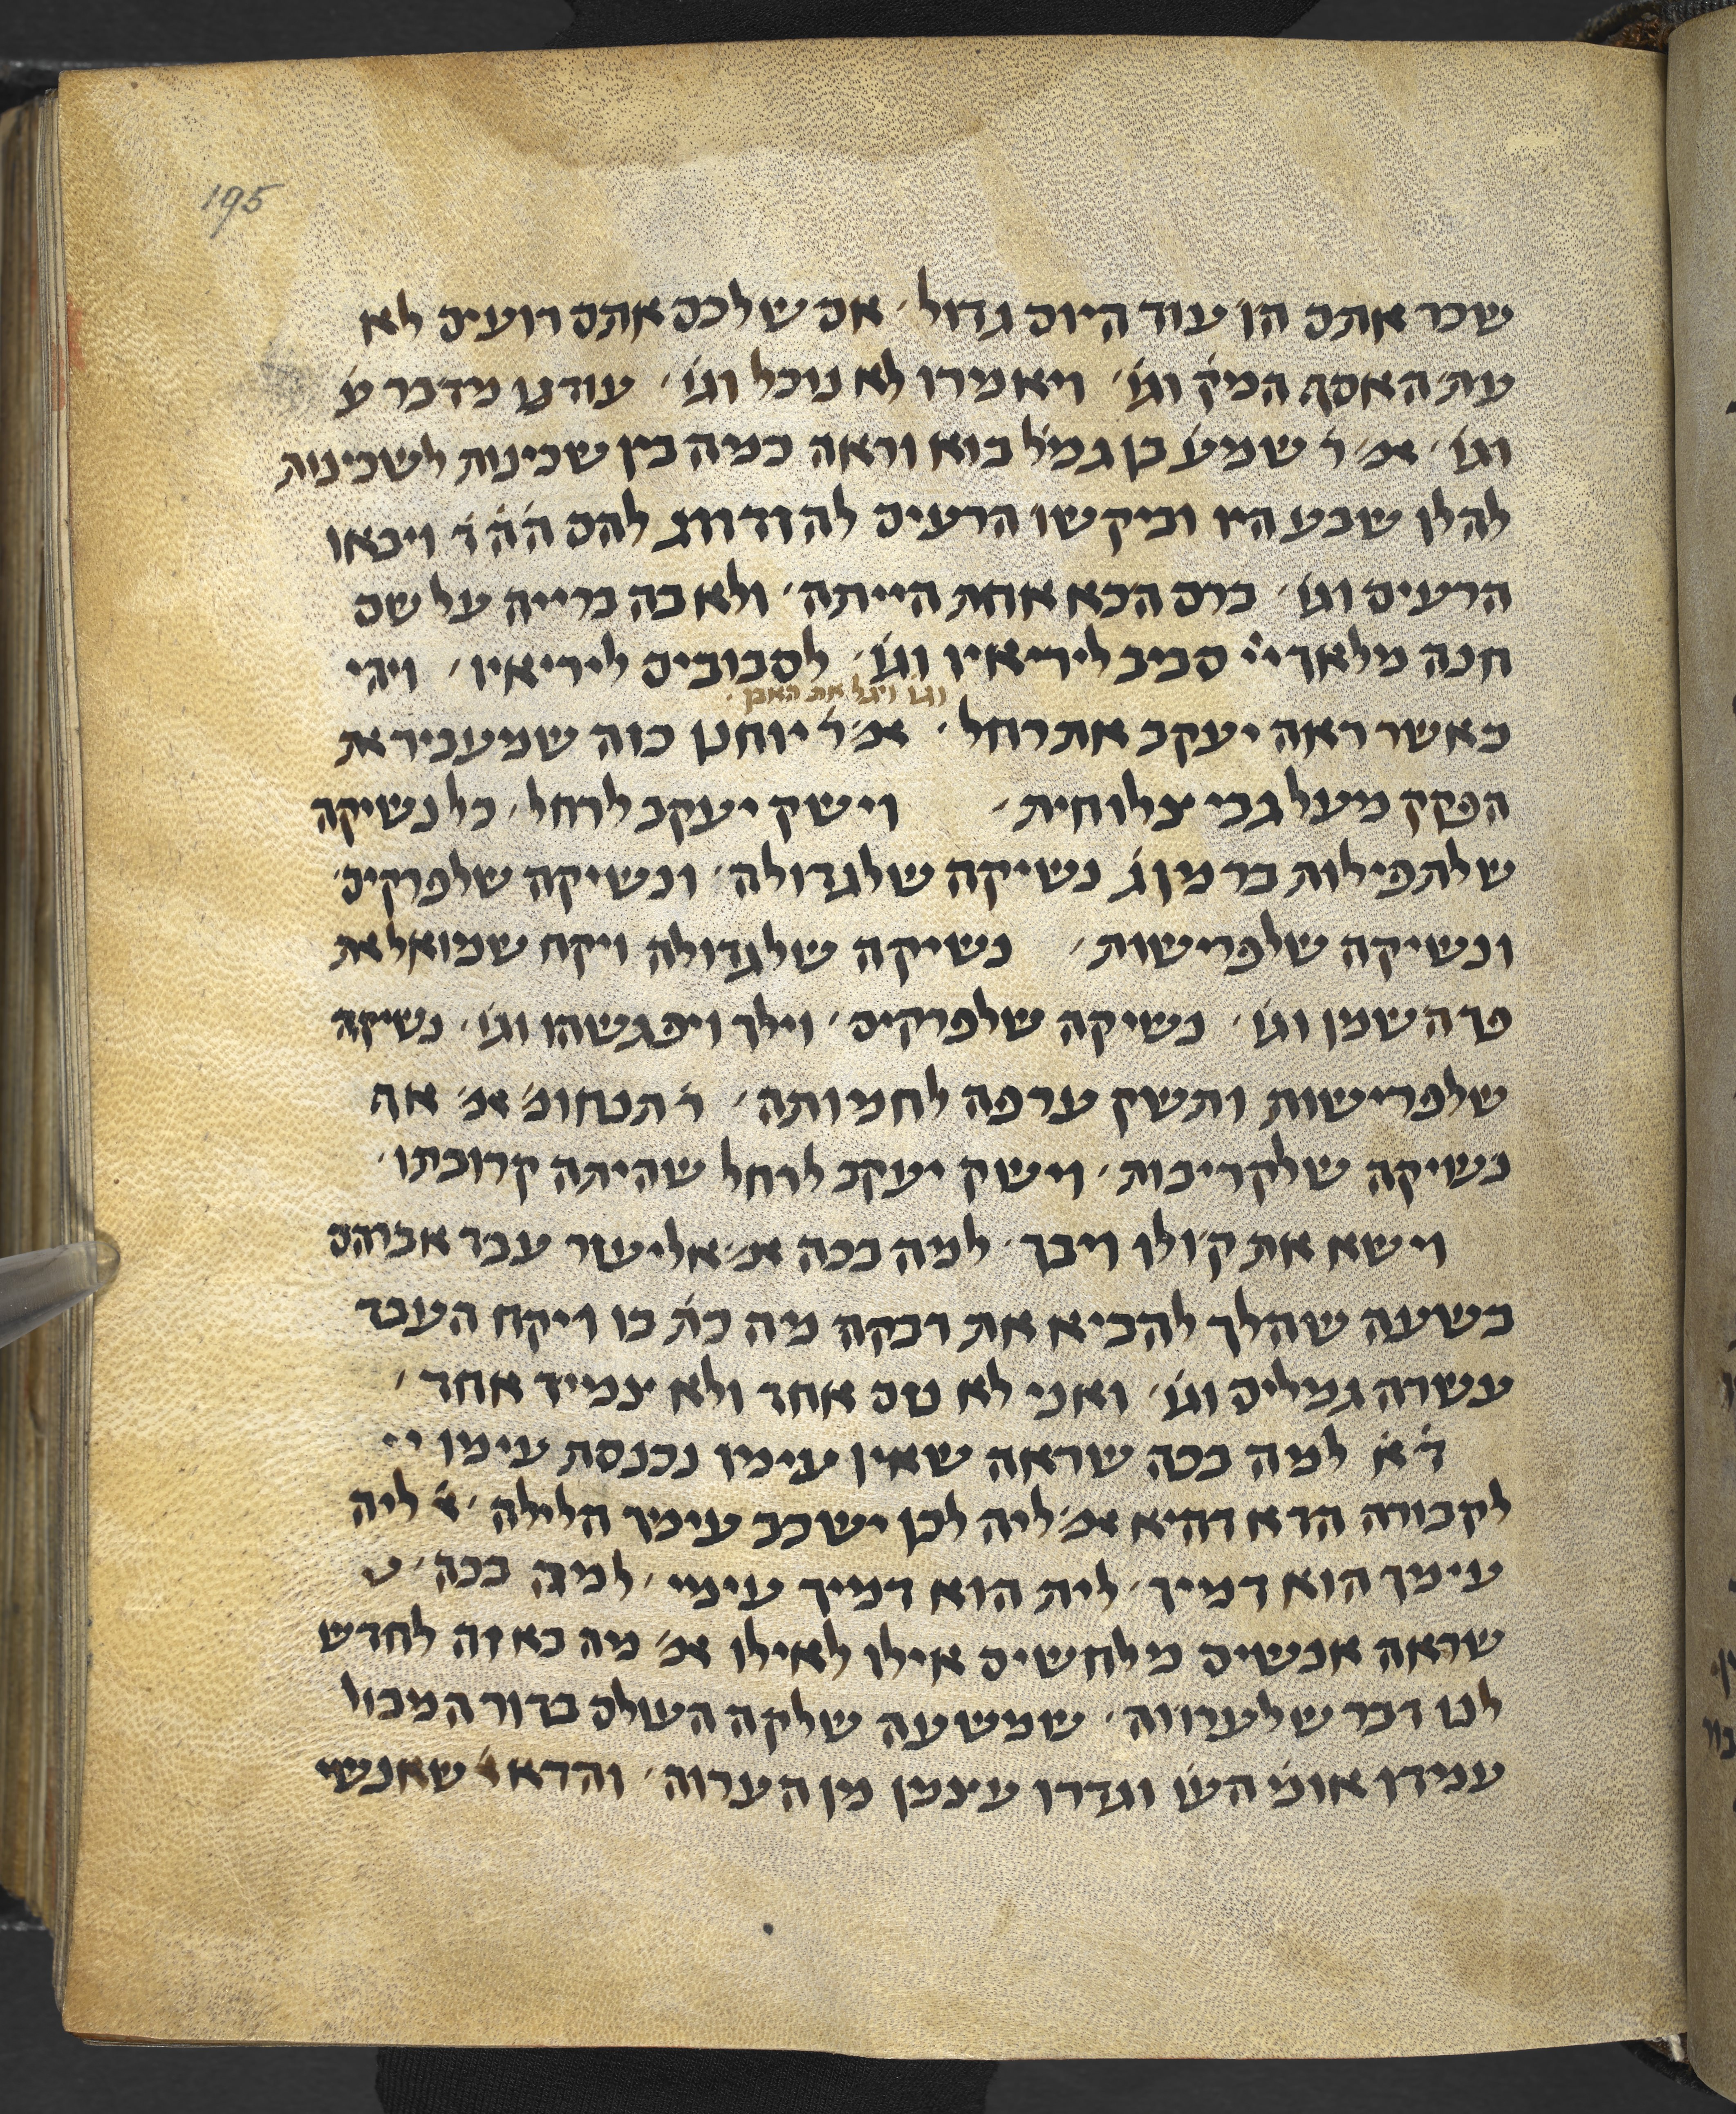 195
שכר אתם הן עוד היום גדול׳ אם שלכם אתם רועים לא
עת האסף המק׳ וגו׳ ויאמרו לא נוכל וגו׳ עודנו מדבר ע׳
וגו׳ אמ׳ ר׳ שמע׳ בן גמל׳ בוא וראה כמה בין שכינות לשכינות
להלן שבע היו וביקשו הרעים להזדווג להם ה׳ה׳ד׳ ויבאו
הרעים וגו׳ ברם הכא אחת הייתה׳ ולא בה ברייה על שם
חנה מלאך יי׳ סביב ליריאיו וגו׳ לסבובים ליריאיו׳ ויהי
וגו׳ ויגל את האבן׳
כאשר ראה יעקב את רחל׳ אמ׳ ר׳ יוחנן כזה שמעביר את
הפקק מעל גבי צלוחית׳ וישק יעקב לרחל׳ כל נשיקה
שלתפילות בר מן ג׳ נשיקה שלגדולה׳ ונשיקה שלפרקים׳
ונשיקה שלפרישות׳ נשיקה שלגדולה ויקח שמואל את
פך השמן וגו׳ נשיקה שלפרקים׳ וילך ויפגשהו וגו׳ נשיקה
שלפרישות ותשק ערפה לחמותה׳ ר׳ תנחומ׳ אמ׳ אף
נשיקה שלקריבות׳ וישק יעקב לרחל שהיתה קרובתו׳
וישא את קולו ויבך׳ למה בכה אמ׳ אליעזר עבד אברהם
בשעה שהלך להביא את רבקה מה כת׳ בו ויקח העבד
עשרה גמלים וגו׳ ואני לא נזם אחד ולא צמיד אחד׳
ד׳א׳ למה בכה שראה שאין עימו נכנסת עימו
לקבורה הדא דהיא אמ׳ ליה לכן ישכב עימך הלילה׳ א׳ ליה
עימך הוא דמיך׳ לית הוא דמיך עימי׳ למה בכה׳
שראה אנשים מלחשים אילו לאילו אמ׳ מה בא זה לחדש
לנו דבר שלערווה׳ שמשעה שלקה העולם בדור המבול
עמדו אומ׳ העו׳ וגדרו עצמן מן הערוה׳ והדא א׳ שאנשי